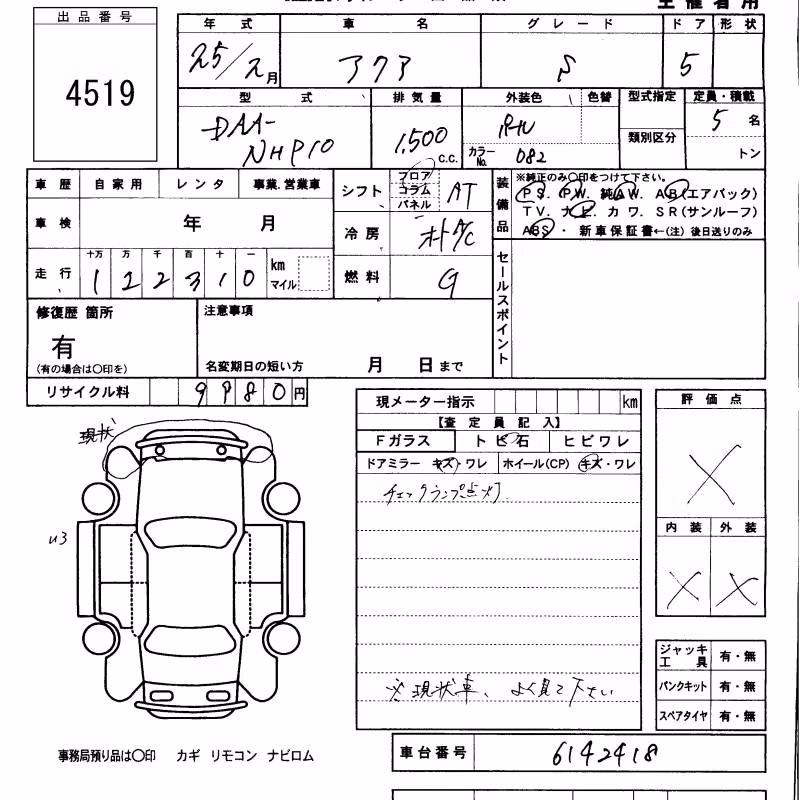 出品番号
4519
年式 車名 グレード ドア 形状
25/2月 アクア S 5
型式 排気量 外装色 色替 型式指定 定員・積載
DAA-NHP10 1,500 c.c. パール 類別区分 5名
カラーNo. 082 トン
車歴 自家用 レンタ 事業.営業車
車検 年 月
走行 十万 万 千 百 十 一
1 2 2 3 1 0 km マイル
シフト フロア コラム パネル AT
冷房 オートA/C
燃料 G
装備品
※純正のみ○印をつけて下さい。
PS. PW. 純AW. AB(エアバック)
TV. ナビ. カワ. SR(サンルーフ)
ABS ・ 新車保証書←(注) 後日送りのみ
セールスポイント
修復歴 箇所
有
(有の場合は○印を)
注意事項
名変期日の短い方 月 日まで
リサイクル料 9980円
現状
u3
事務局預り品は○印 カギ リモコン ナビロム
現メーター指示 km
【査定員記入】
Fガラス トビ石 ヒビワレ
ドアミラー キズ・ワレ ホイール(CP) キズ・ワレ
チェックランプ点灯
※現状車、よく見て下さい
車台番号 6142418
評価点
X
内装 外装
X X
ジャッキ工具 有・無
パンクキット 有・無
スペアタイヤ 有・無